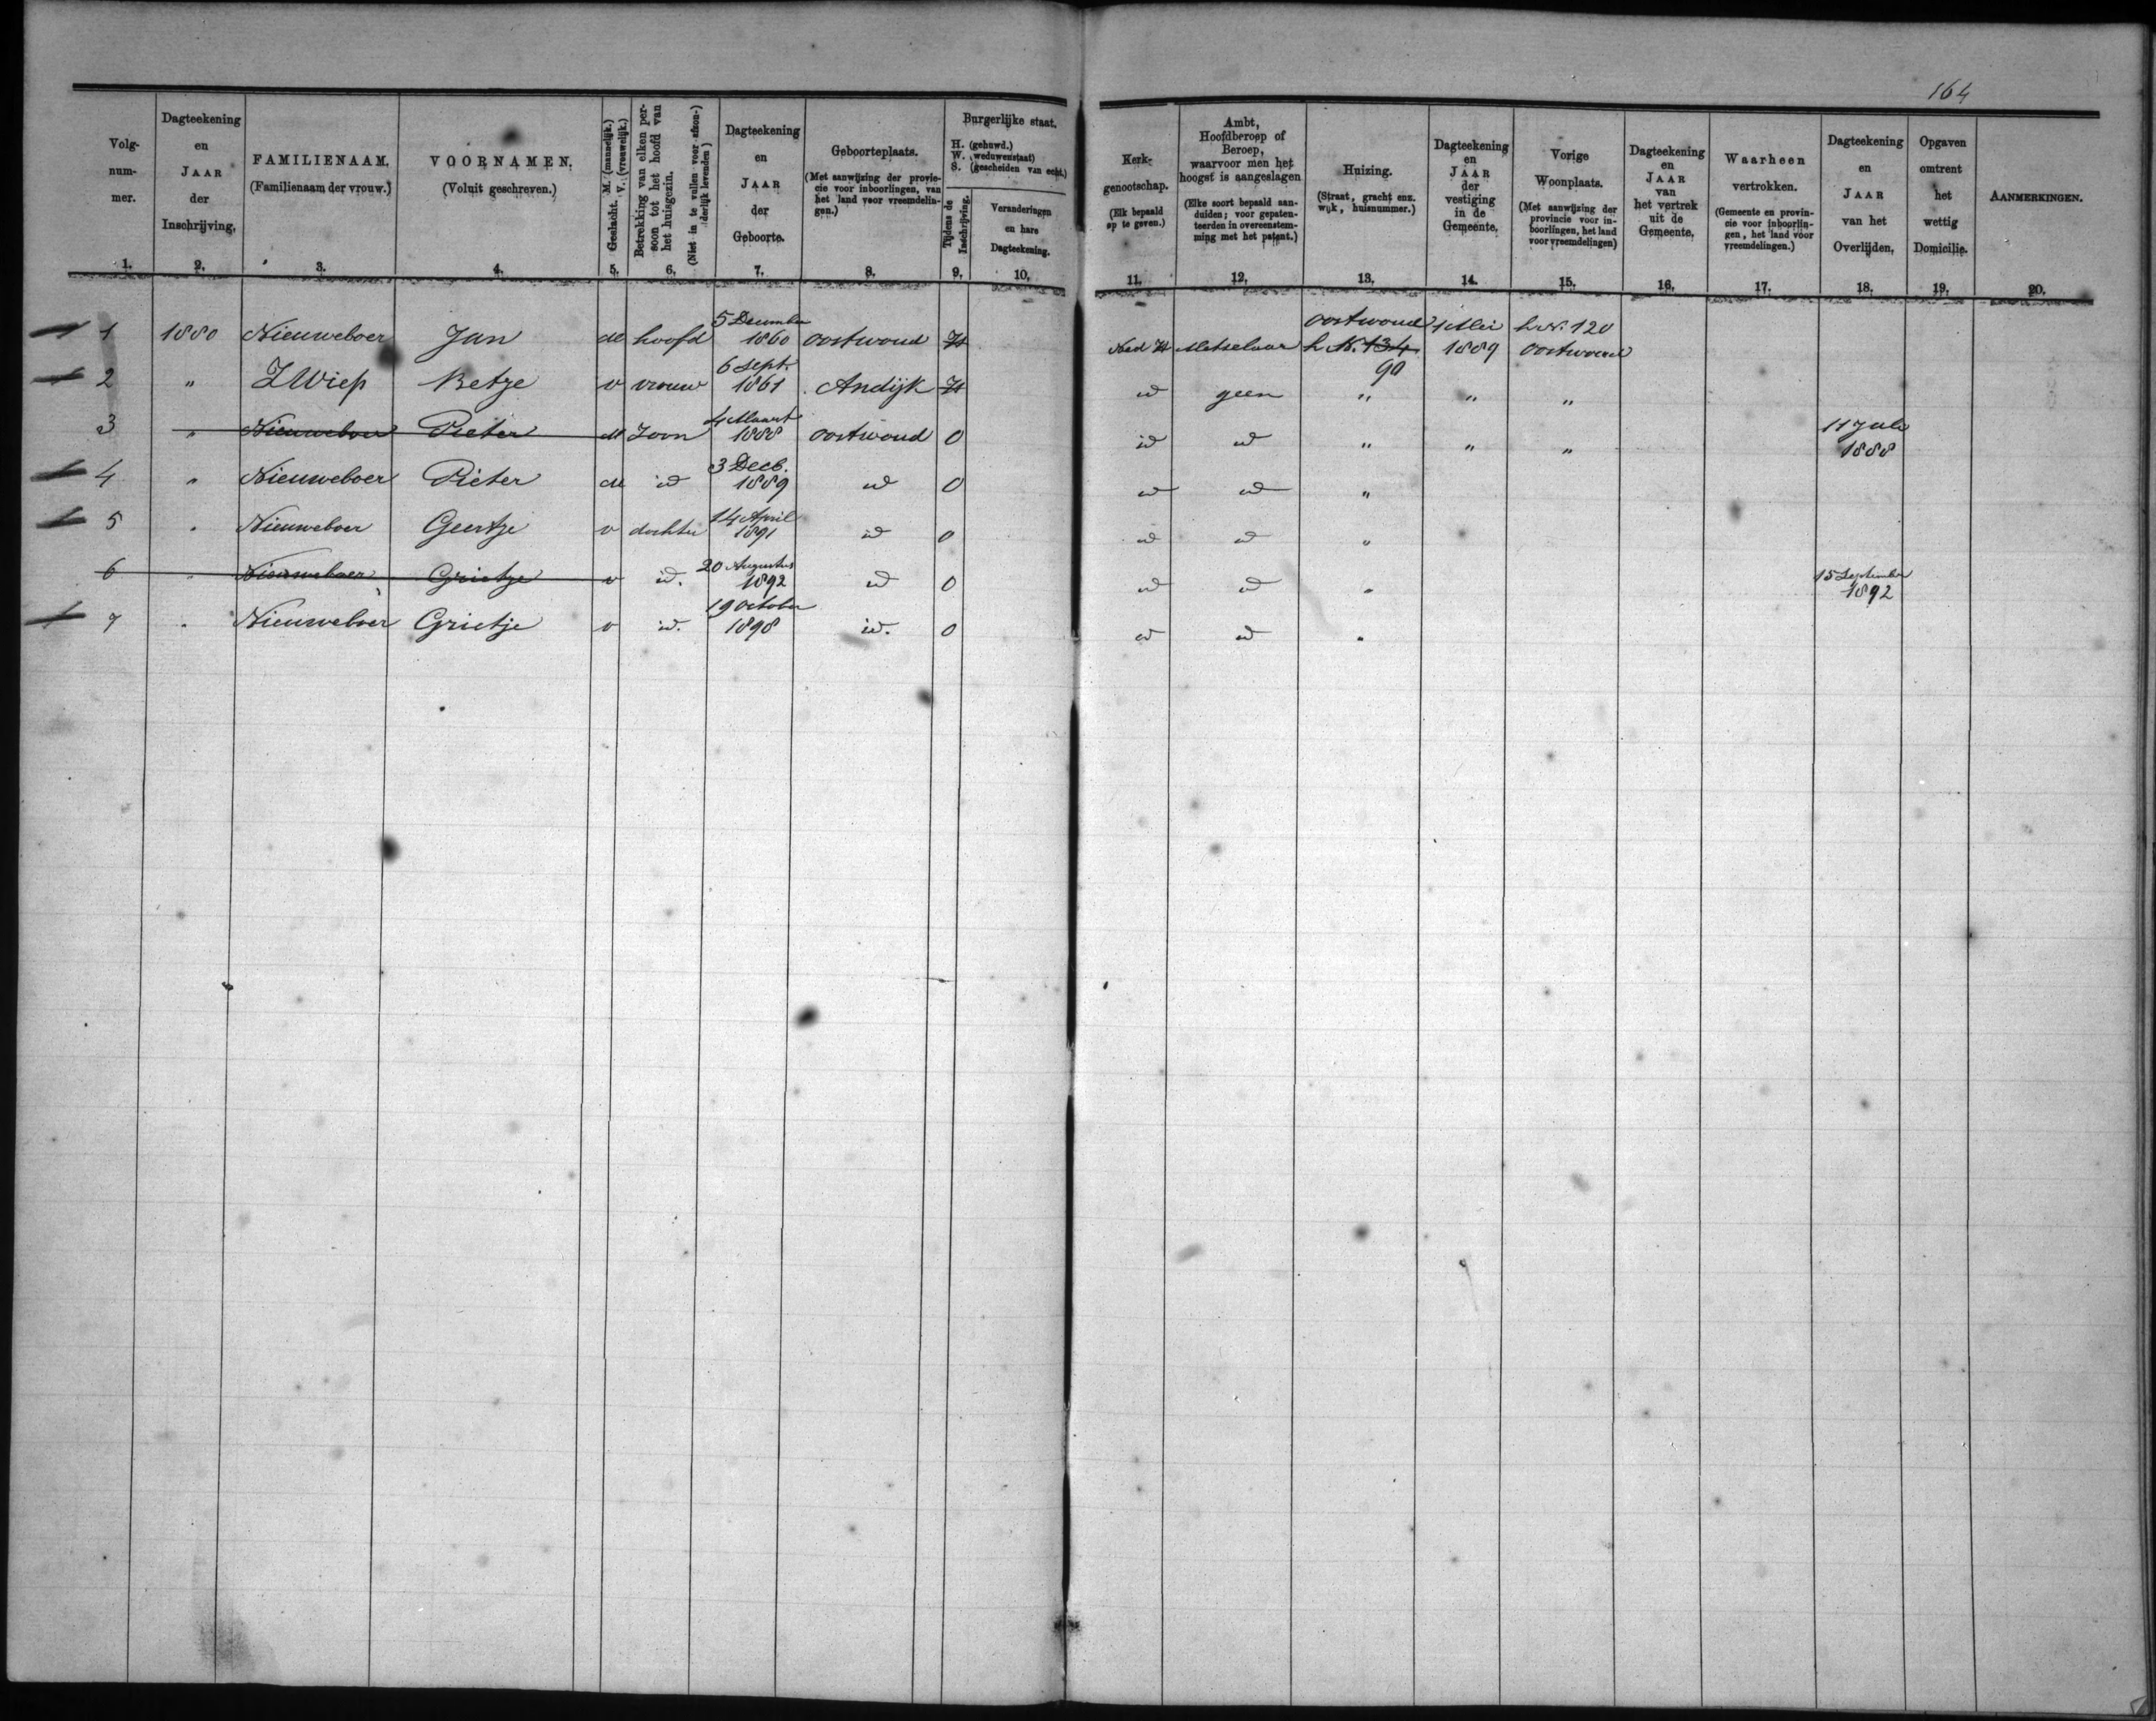 164
Volg-
num-
mer.
1.
Dagteekening
en
JAAR
der
Inschrijving.
2.
FAMILIENAAM.
(Familienaam der vrouw.)
3.
VOORNAMEN.
(Voluit geschreven.)
4.
Geslacht. M. (mannelijk.)
V. (vrouwelijk.)
5.
Betrekking van elken per-
soon tot het hoofd van
het huisgezin.
(Niet in te vullen voor afzon-
derlijk levenden)
6.
Dagteekening
en
JAAR
der
Geboorte.
7.
Geboorteplaats.
(Met aanwijzing der provin-
cie voor inboorlingen, van
het land voor vreemdelin-
gen.)
8.
Burgerlijke staat.
H. (gehuwd.)
W. (weduwenstaat)
S. (gescheiden van echt.)
Tijdens de
Inschrijving.
9.
Veranderingen
en hare
Dagteekening.
10.
Kerk-
genootschap.
(Elk bepaald
op te geven.)
11.
Ambt,
Hoofdberoep of
Beroep,
waarvoor men het
hoogst is aangeslagen
(Elke soort bepaald aan-
duiden; voor gepaten-
teerden in overeenstem-
ming met het patent.)
12.
Huizing.
(Straat, gracht enz.
wijk, huisnummer.)
13.
Dagteekening
en
JAAR
der
vestiging
in de
Gemeente.
14.
Vorige
Woonplaats.
(Met aanwijzing der
provincie voor in-
boorlingen, het land
voor vreemdelingen)
15.
Dagteekening
en
JAAR
van
het vertrek
uit de
Gemeente.
16.
Waarheen
vertrokken.
(Gemeente en provin-
cie voor inboorlin-
gen, het land voor
vreemdelingen.)
17.
Dagteekening
en
JAAR
van het
Overlijden.
18.
Opgaven
omtrent
het
wettig
Domicilie.
19.
AANMERKINGEN.
20.
1 1880 Nieuweboer Jan M hoofd 5 December 1860 Oostwoud H Ned H Metselaar Oostwoud h N. 134 90 1 Mei 1889 h N. 120 Oostwoud
2 " ZWiep Betje v vrouw 6 Sept. 1861 Andijk H id geen " " "
3 " Nieuweboer Pieter M Zoon 4 Maart 1888 Oostwoud O id id " " " 11 Juli 1888
4 " Nieuweboer Pieter M id 3 Decb. 1889 id O id id "
5 " Nieuweboer Geertje v dochter 14 April 1891 id O id id "
6 " Nieuweboer Grietje v id. 20 Augustus 1892 id O id id " 15 September 1892
7 " Nieuweboer Grietje v id. 19 October 1898 id. O id id "